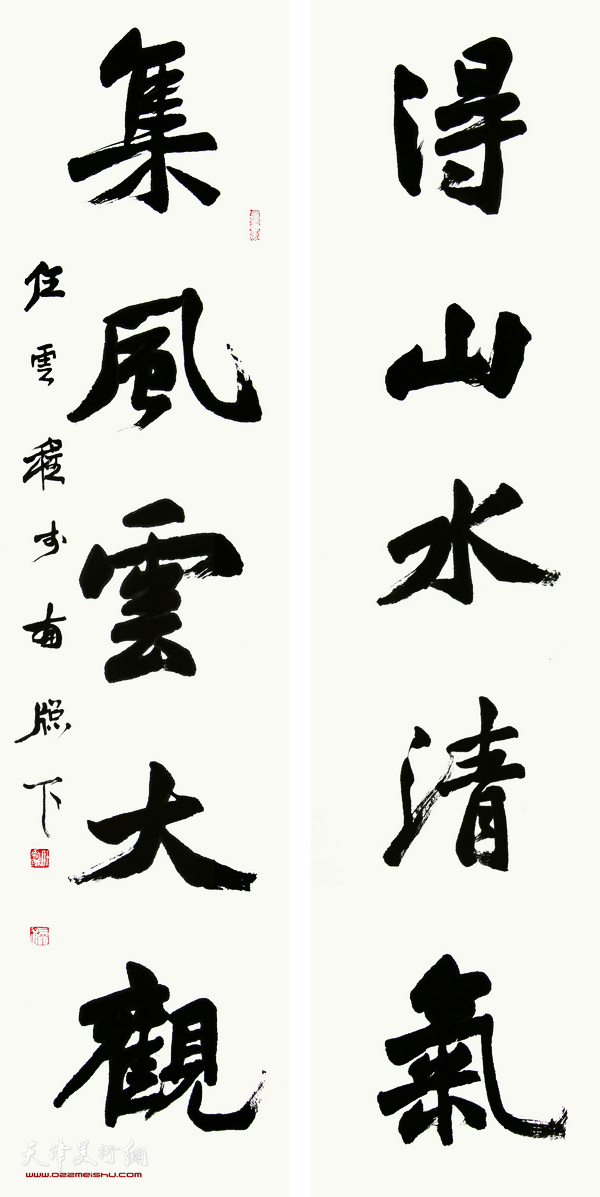 得山水清氣
集風雲大觀
任雲程于南牕下
天津美術網
www.022meishu.com